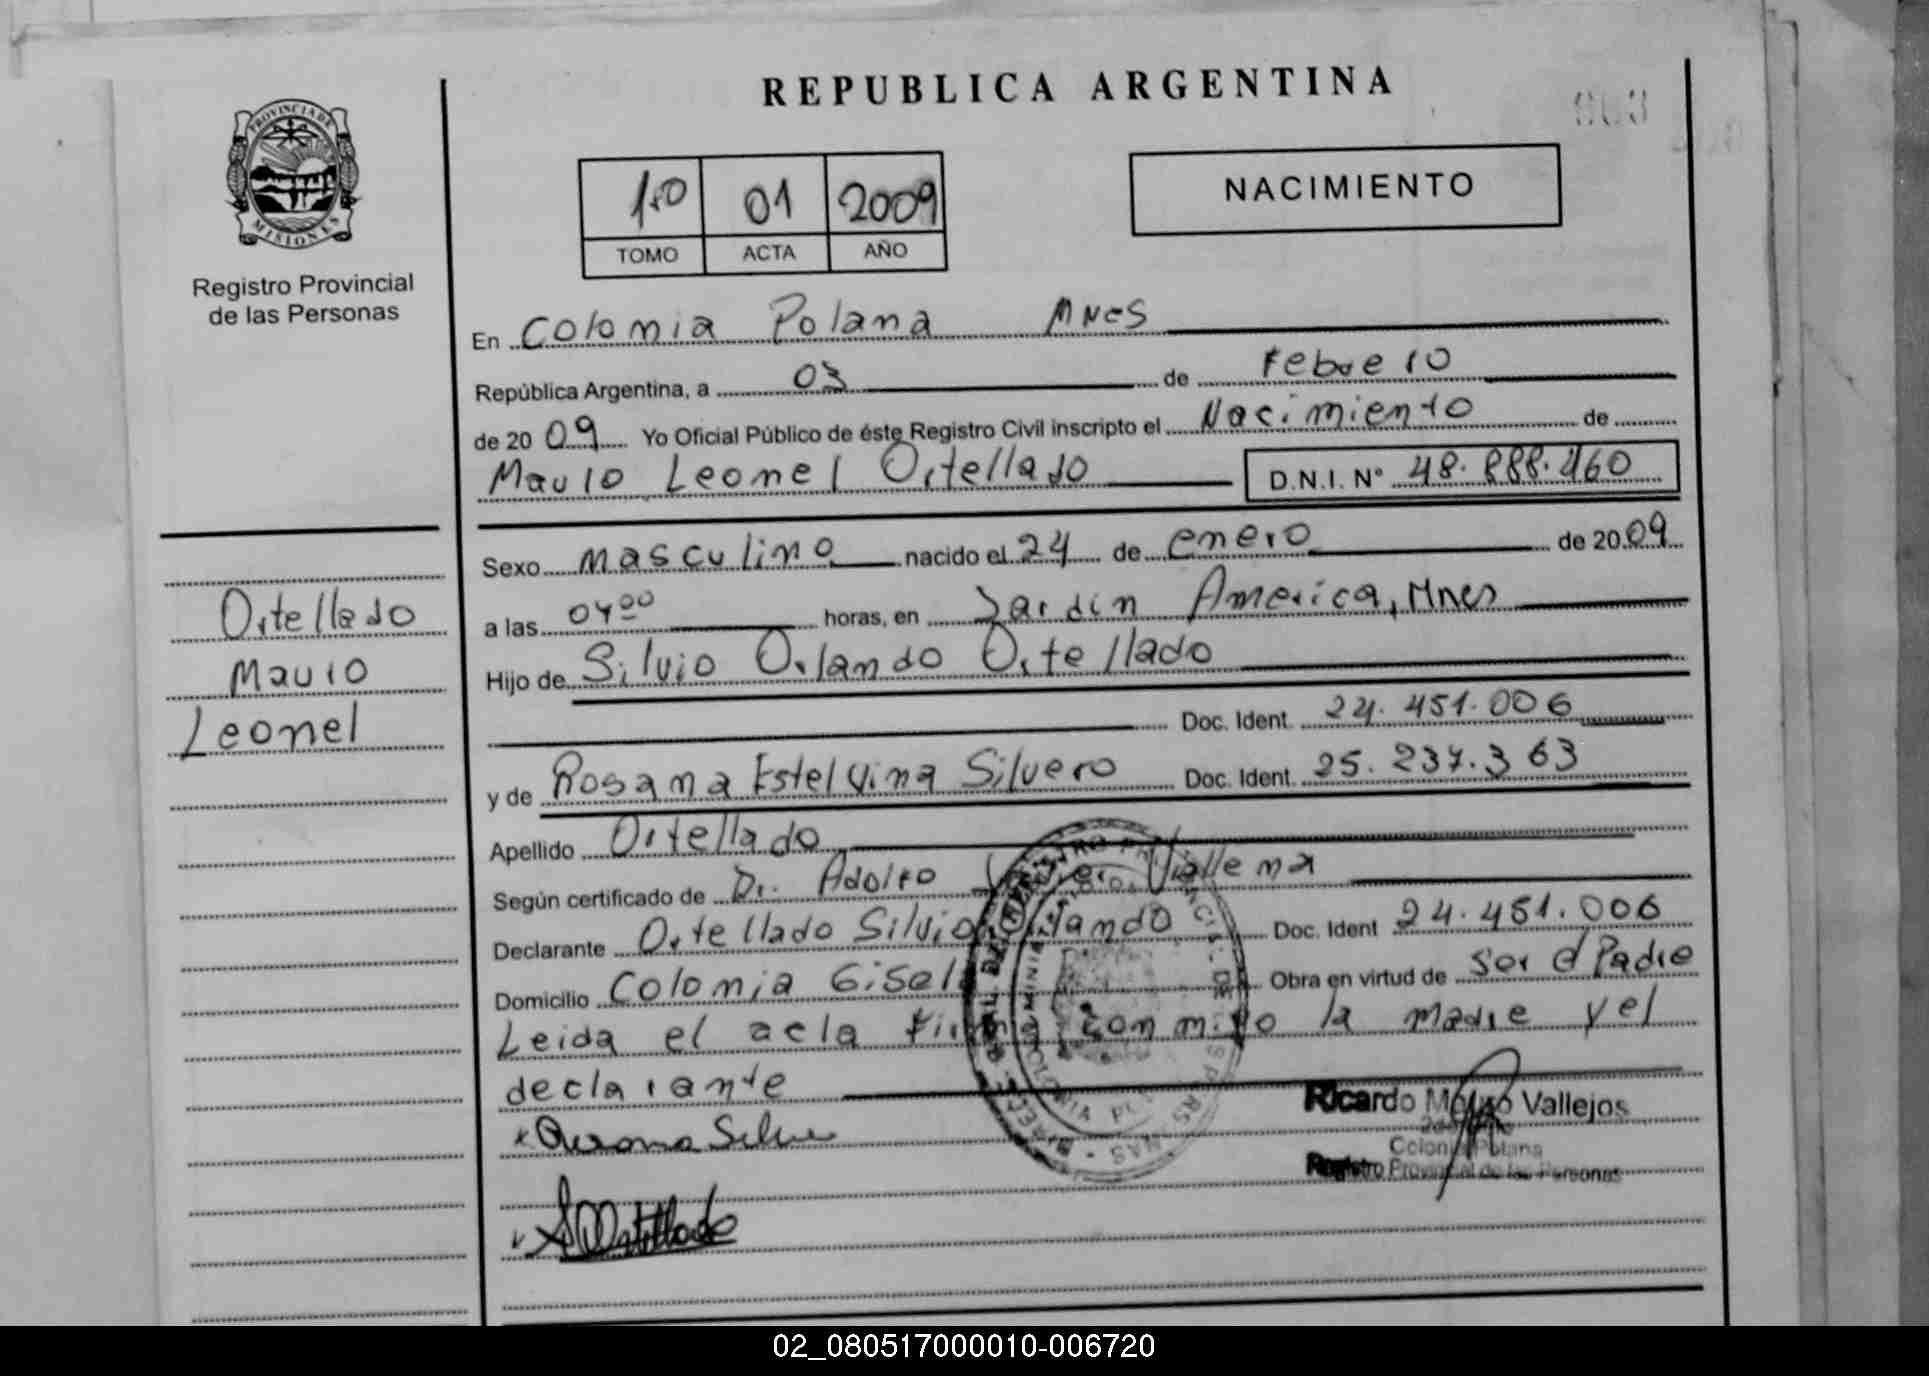 REPUBLICA ARGENTINA
PROVINCIA DE
MISIONES
Registro Provincial
de las Personas
003
1.0 01 2009
TOMO ACTA AÑO
NACIMIENTO
En Colonia Polana Mnes
República Argentina, a 03 de Febrero
de 2009 Yo Oficial Público de éste Registro Civil inscripto el Nacimiento de
Mauro Leonel Ortellado D.N.I. Nº 48.888.460
Sexo masculino nacido el 24 de enero de 2009
a las 04 00 horas, en Jardin America, Mnes
Hijo de Silvio Orlando Ortellado
Doc. Ident. 24.451.006
y de Rosana Estelvina Silvero Doc. Ident. 25.237.363
Apellido Ortellado
Según certificado de Dr. Adolfo Villema
Declarante Ortellado Silvio Orlando Doc. Ident 24.451.006
Domicilio Colonia Gisela Obra en virtud de Ser el Padre
Leida el acta Firma conmigo la madre y el
declarante
Ortellado
Mauro
Leonel
Ricardo Vallejos
Colonia Polana
Registro Provincial de las Personas
02_080517000010-006720